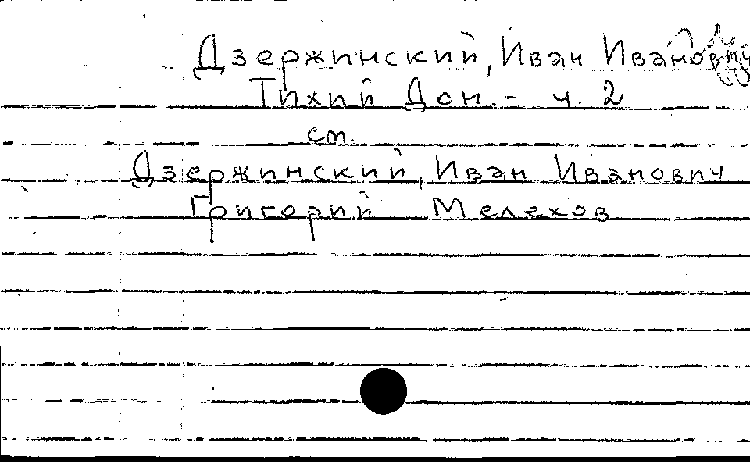 Дзержинский, Иван Иванович
Тихий Дон. - ч. 2
см.
Дзержинский, Иван Иванович
Григорий Мелехов